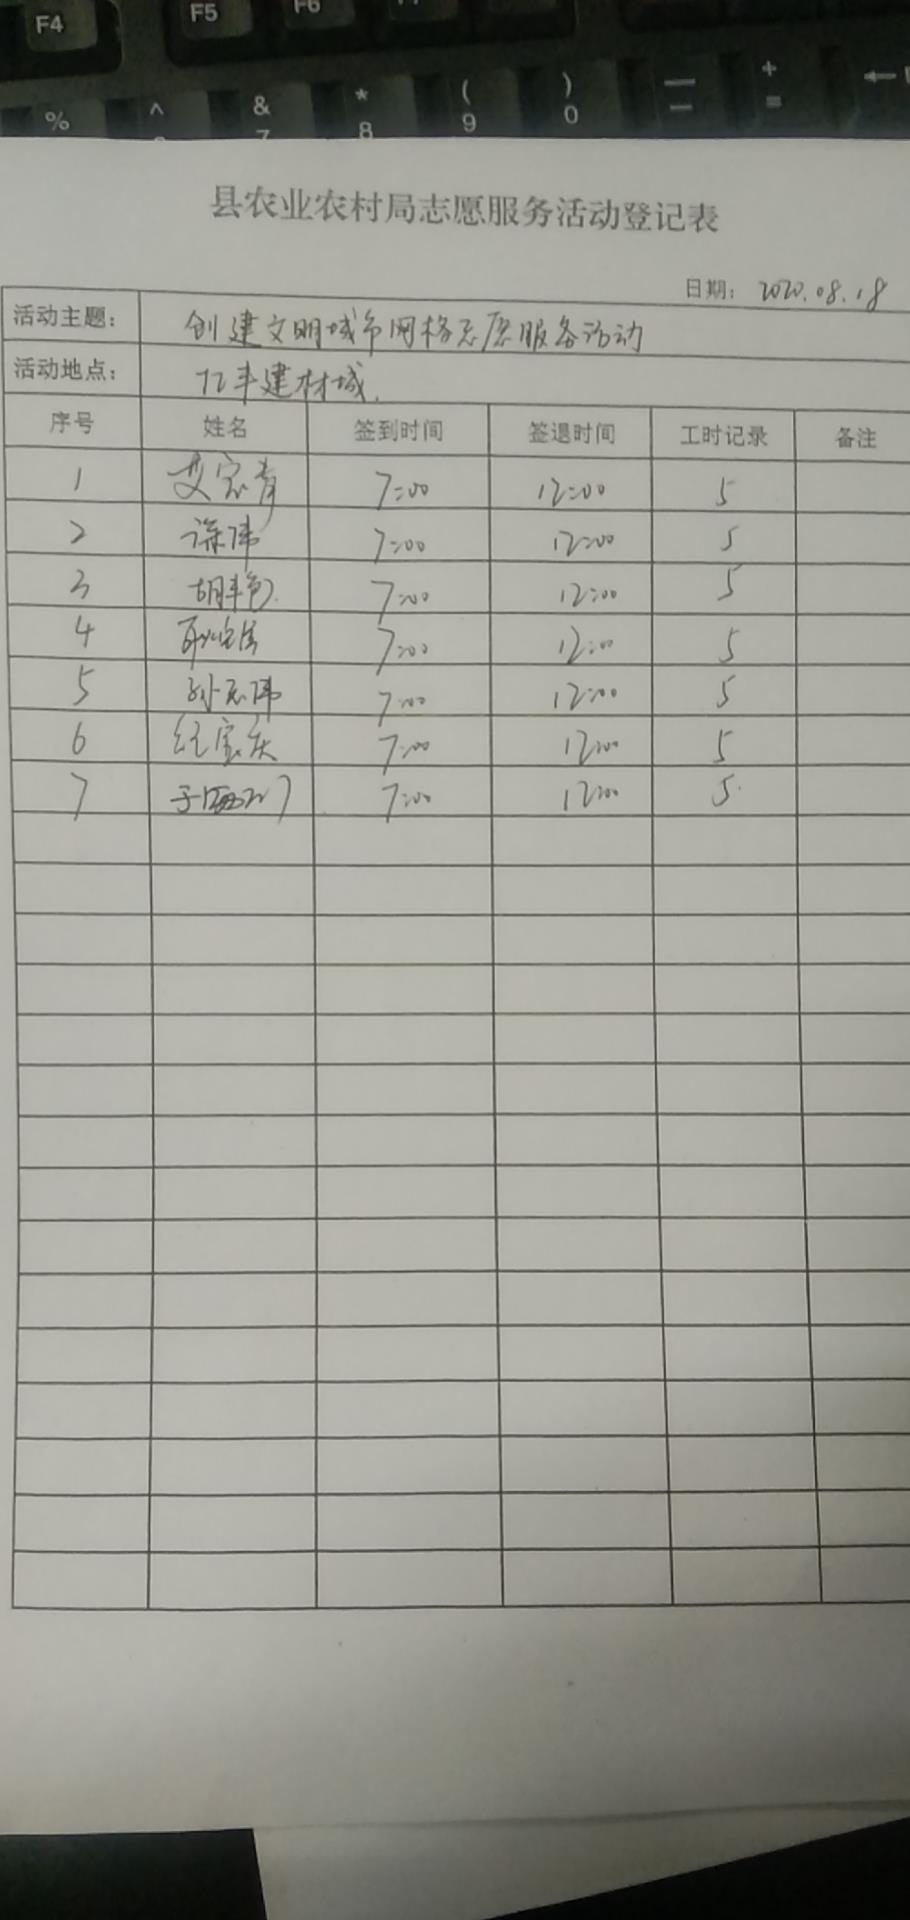 F4 F5 F6
% ^ & 7 * 8 ( 9 ) 0 — + =
县农业农村局志愿服务活动登记表
日期: 2020.08.18
活动主题: 创建文明城市网格志愿服务活动
活动地点: 亿丰建材城
序号 姓名 签到时间 签退时间 工时记录 备注
1 7:00 12:00 5
2 7:00 12:00 5
3 胡丰艳 7:00 12:00 5
4 7:00 12:00 5
5 孙志伟 7:00 12:00 5
6 纪家庆 7:00 12:00 5
7 7:00 12:00 5